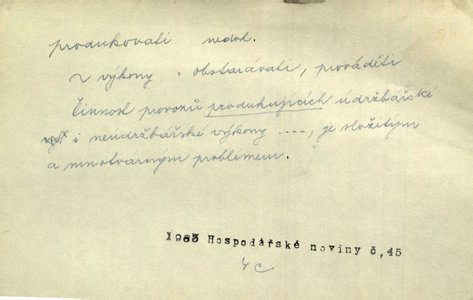 produkovati nedok.
z výkony = obstarávati, prováděti
Činnost provozů produkujících údržbářské
i neúdržbářské výkony ...., je složitým
a mnotvarným problémem.
1963 Hospodářské noviny č,45